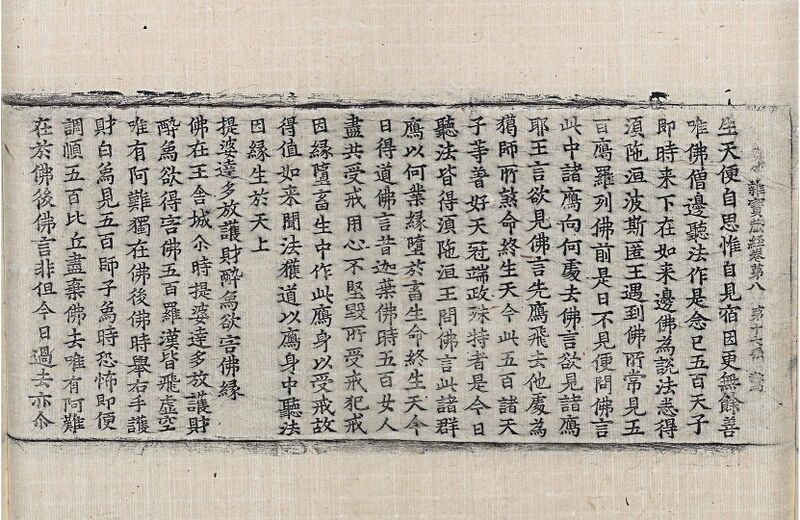 雜寶藏經卷第八 第十七張
生天便自思惟自見宿因更無餘善
唯佛僧邊聽法作是念已五百天子
即時来下在如来邊佛為說法悉得
湏陁洹波斯匿王遇到佛所常見五
百鴈羅列佛前是日不見便問佛言
此中諸鴈向何處去佛言欲見諸鴈
耶王言欲見佛言先鴈飛去他處為
獵師所煞命終生天今此五百諸天
子等著好天冠端政殊特者是今日
聽法皆得湏陁洹王問佛言此諸群
鴈以何業緣墮於畜生命終生天今
日得道佛言昔迦葉佛時五百女人
盡共受戒用心不堅毀所受戒犯戒
因緣墮畜生中作此鴈身以受戒故
得值如来聞法獲道以鴈身中聽法
因緣生於天上
提婆達多放護財醉象欲害佛緣
佛在王舍城尒時提婆達多放護財
醉象欲得害佛五百羅漢皆飛虛空
唯有阿難獨在佛後佛時舉右手護
財白象見五百師子象時恐怖即便
調順五百比丘盡棄佛去唯有阿難
在於佛後佛言非但今日過去亦尒